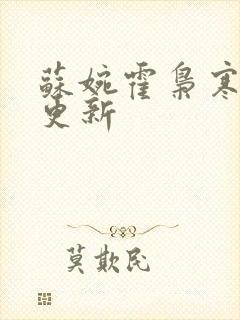 蘇婉霍梟寒
更新
莫欺民